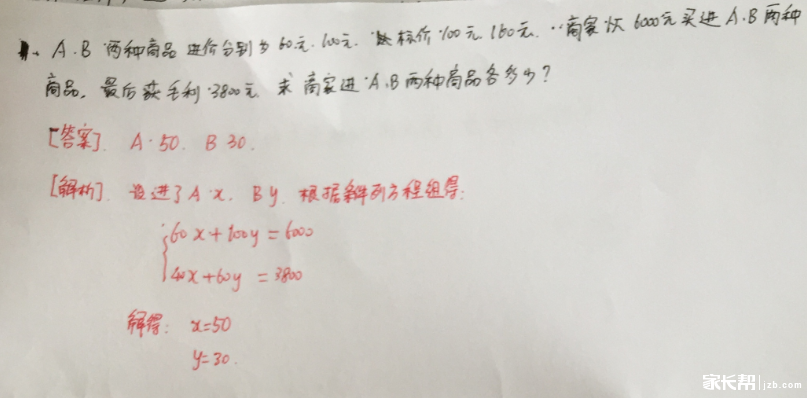 1. A.B 两种商品 进价分别为 60元.100元. 标价 100元.160元. 商家以 6000元买进 A.B 两种
商品. 最后获毛利 3800元. 求 商家进 A.B 两种商品各多少?
[答案]. A.50. B 30.
[解析]. 设进了 A.x. B y. 根据条件列方程组得:
60x+100y=6000
40x+60y=3800
解得: x=50
y=30.
家长帮|jzb.com